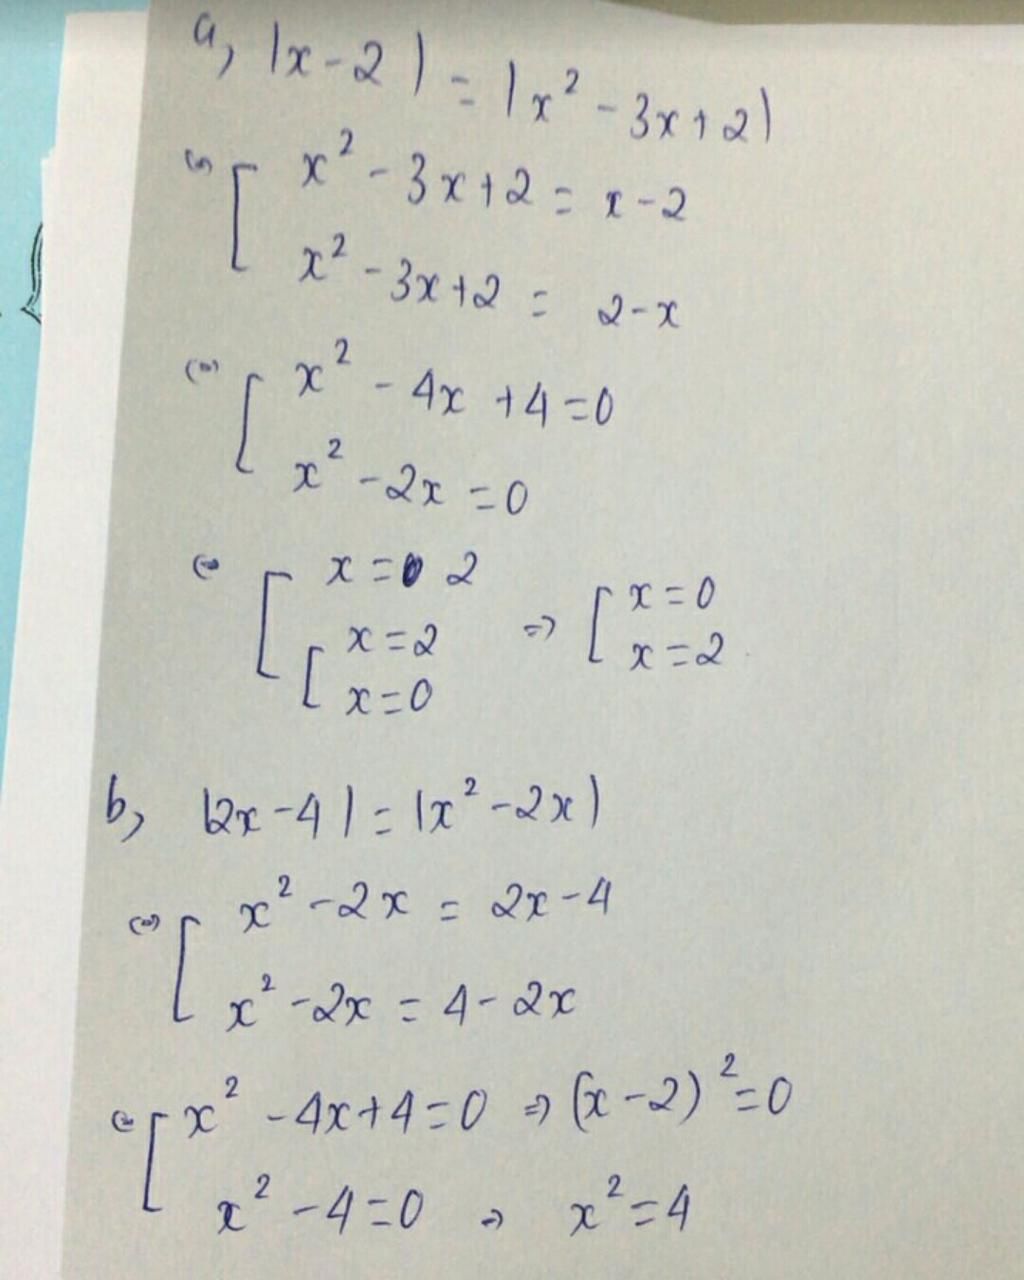 a, |x-2| = |x²-3x+2|
⇔ [ x²-3x+2 = x-2
x²-3x+2 = 2-x
⇔ [ x²-4x+4=0
x²-2x=0
⇔ [ x= 2
[ x=2 ⇒ [ x=0
x=0 x=2
b, |2x-4| = |x²-2x|
⇔ [ x²-2x = 2x-4
x²-2x = 4-2x
⇔ [ x²-4x+4=0 ⇒ (x-2)²=0
x²-4=0 ⇒ x²=4